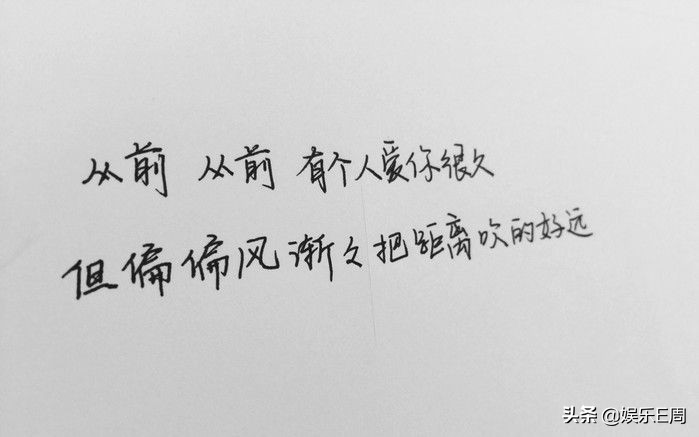 从前 从前 有个人爱你很久
但偏偏风渐々把距离吹的好远
头条 @娱乐E周